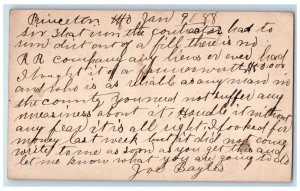 Princeton Mo Jan 9/ 88
Sir that run the contractor had to
run dirt out of a fill there is no
R R company any here or ever had
I bought it of a farmer worth $10.000
and who is as reliable as any man in
the county you need not suffer any
uneasiness about it Handle it without
any fear it is all right I looked for
money last week but it did not come
write to me as soon as you get this and
let me know what you are going to do
Joe Bayles